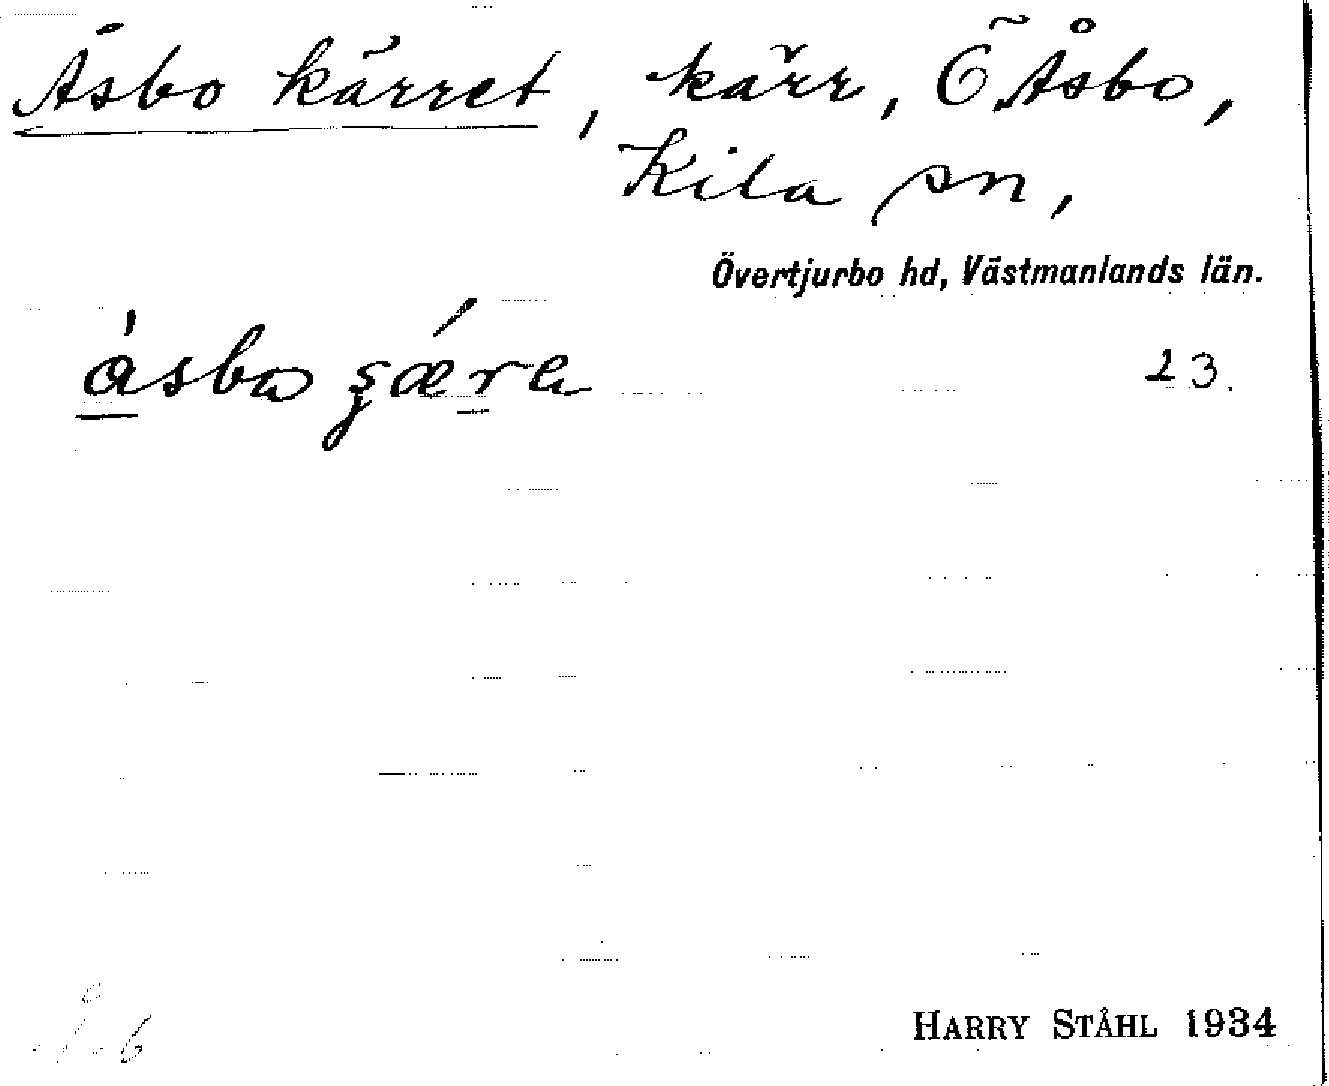 Åsbo kärret, kärr, Ö Åsbo,
Kila sn,
Övertjurbo hd, Västmanlands län.
23.
HARRY STÅHL 1934